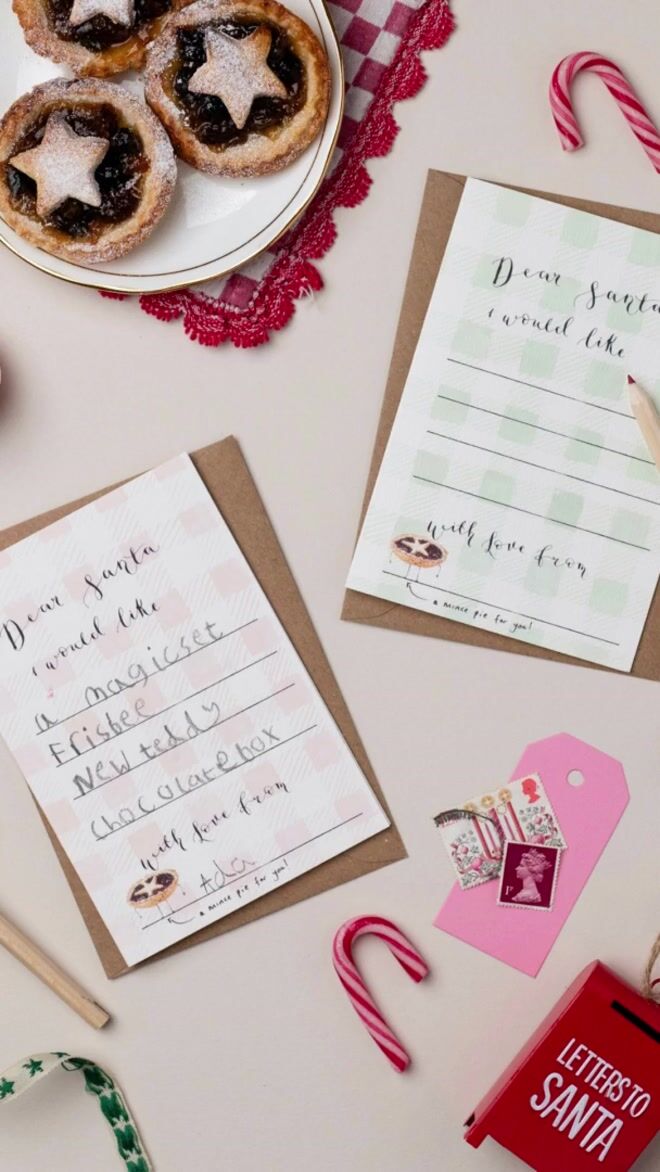 Dear Santa
i would like
with love from
a mince pie for you!
Dear Santa
i would like
a magicset
Frisbee
New teddy
chocolatebox
with love from
Ada
a mince pie for you!
1P
LETTERS TO
SANTA